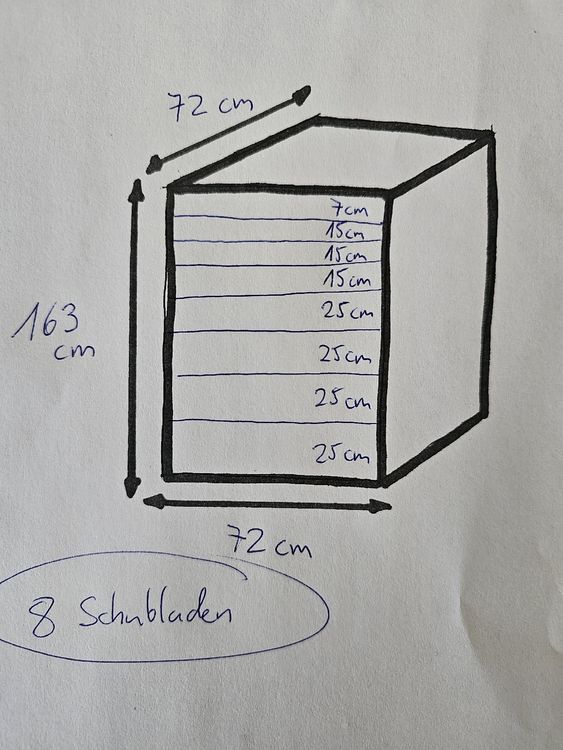 72 cm
7cm
15cm
15cm
15cm
25cm
25cm
25cm
25cm
163
cm
72 cm
8 Schubladen